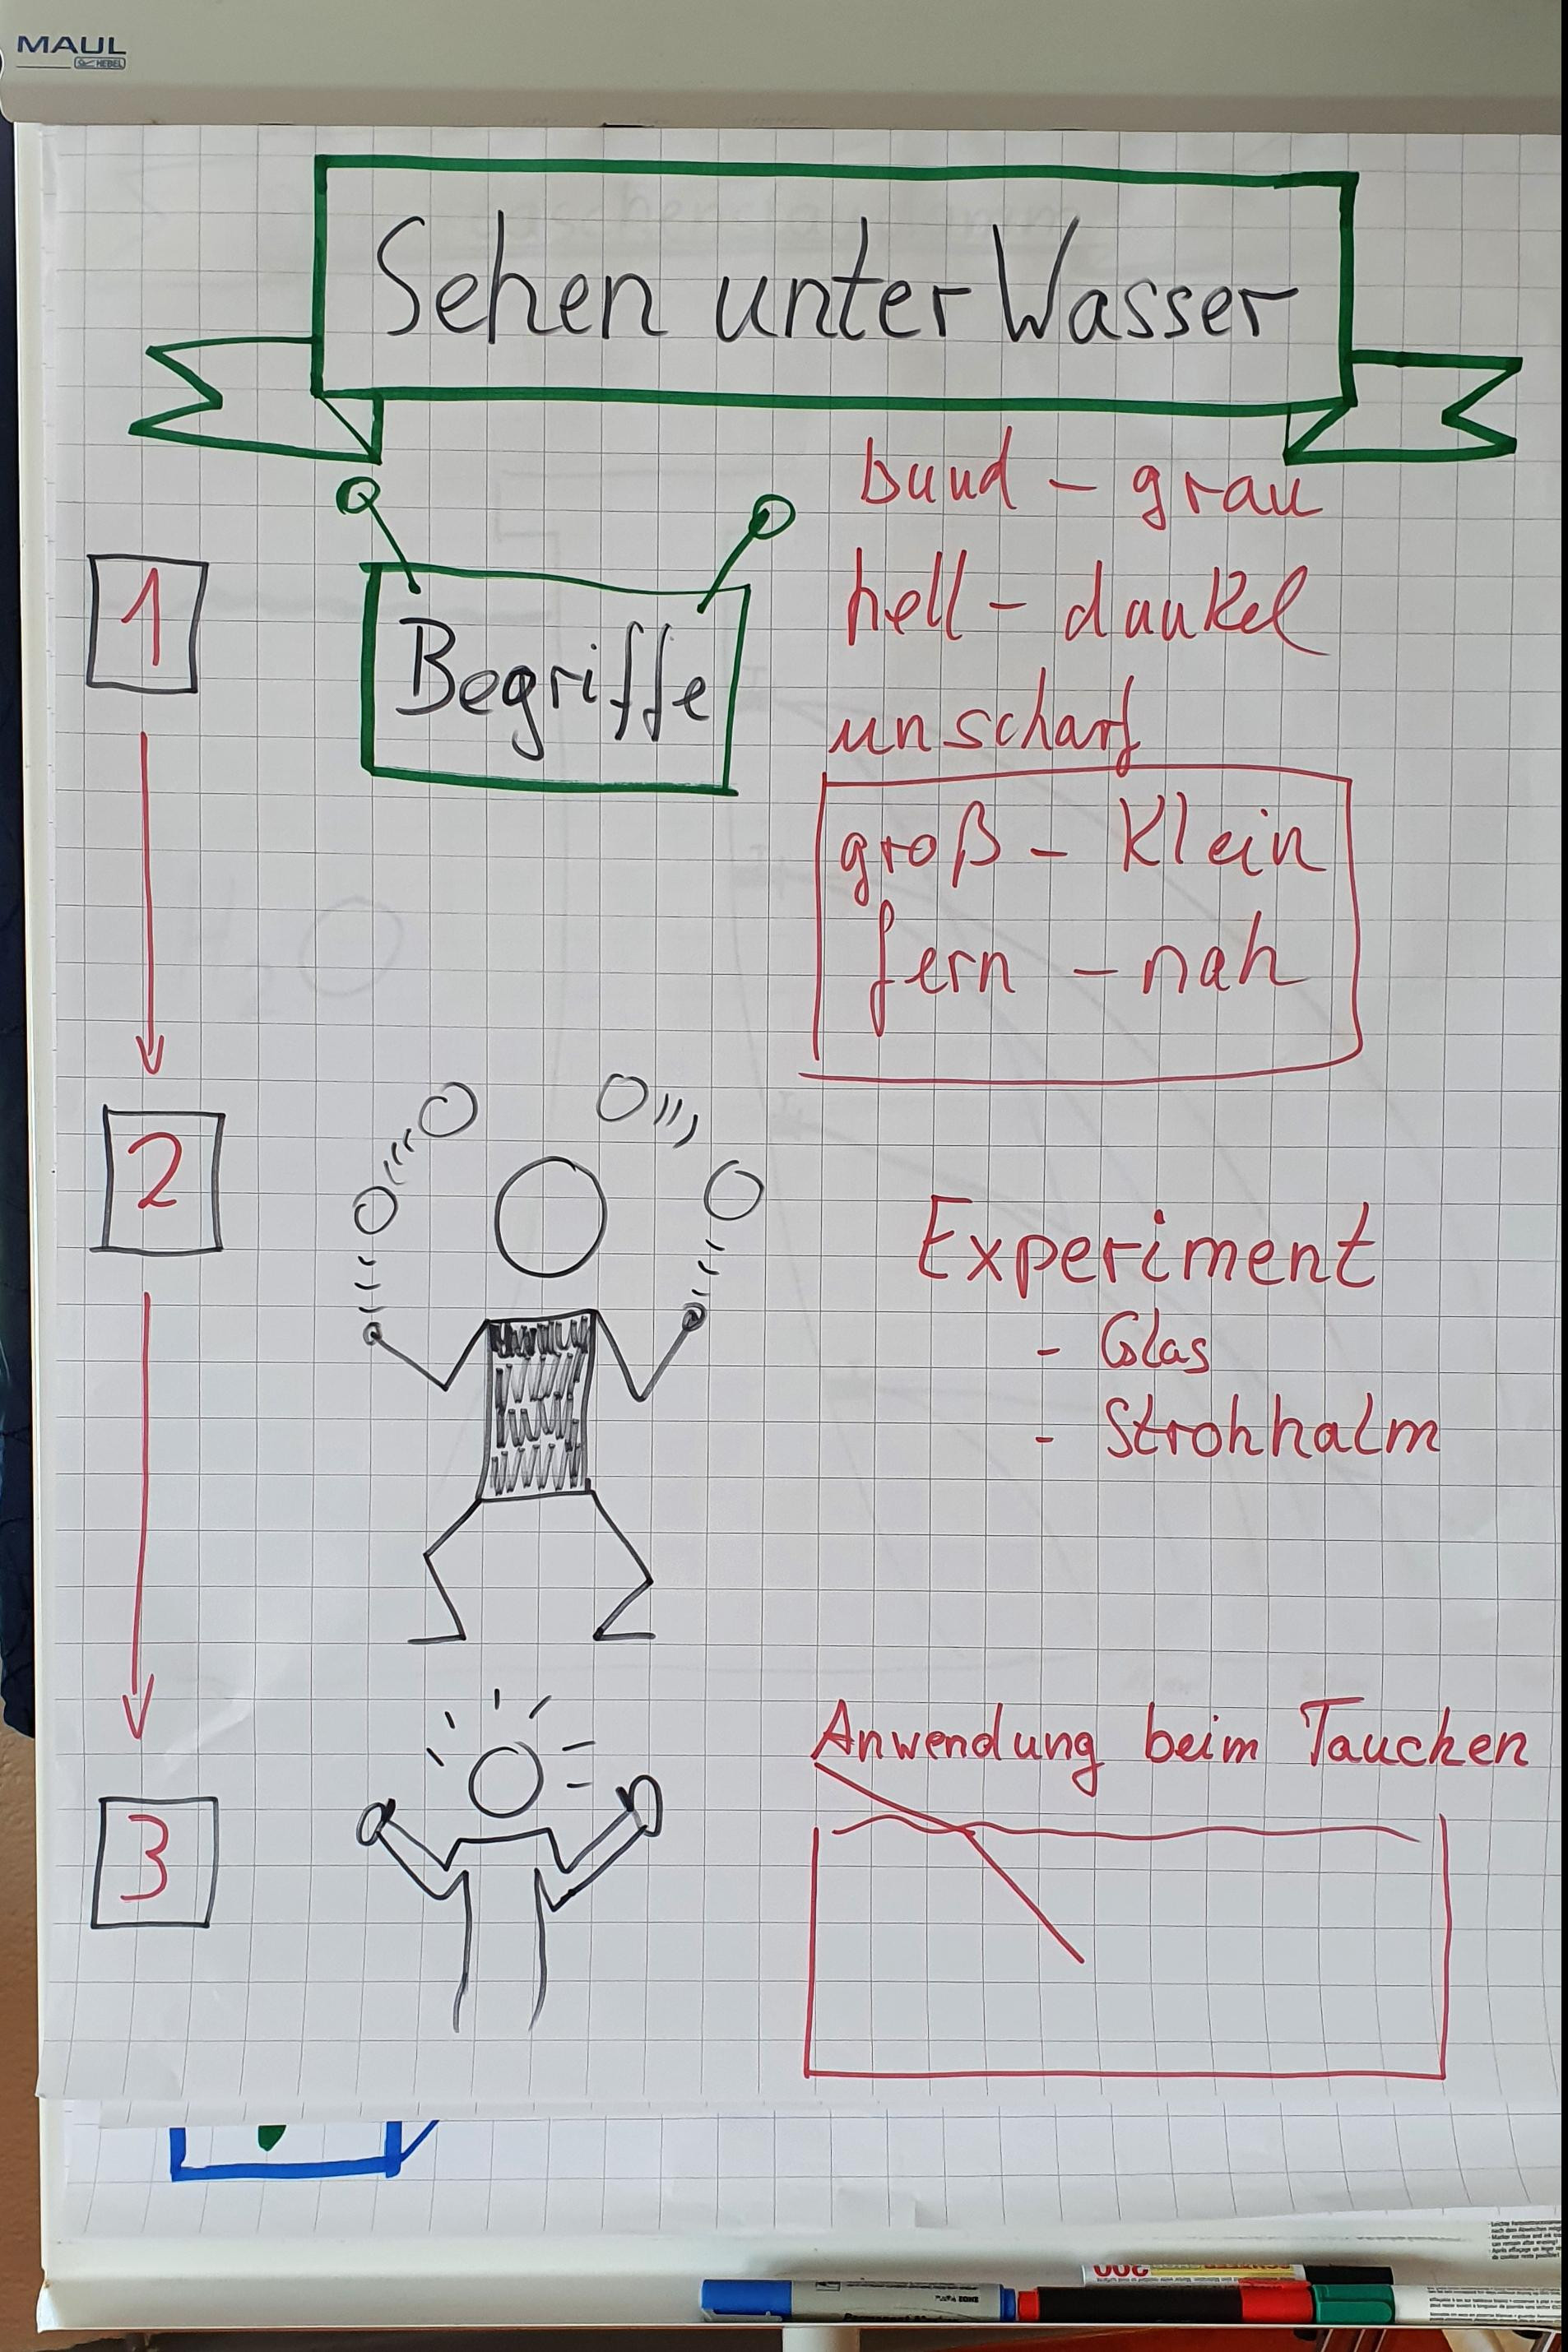 MAUL
HEBEL
Sehen unter Wasser
bund – grau
1
hell – dunkel
Begriffe
unscharf
groß – klein
fern – nah
2
Experiment
- Glas
- Strohhalm
Anwendung beim Tauchen
3